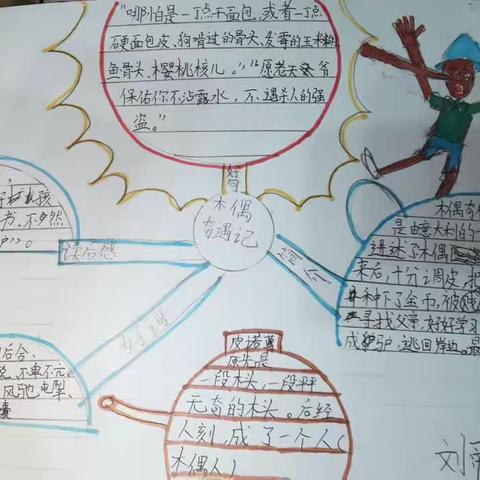 "哪怕是一丁点干面包,或者一丁点
硬面包皮,狗啃过的骨头,发霉的玉米糊
鱼骨头、樱桃核儿。""愿老天爷
保佑你不沾露水,不遇杀人的强
盗。"
好句
木偶
奇遇记
读后感
好词
简介
孩
书,不
。
木偶奇
是由意大利的一
讲述了木偶
来后,十分调皮,把
中下了金币,被
寻找父亲,好好学习
成驴,逃回岸边。最
后合、
不卑不亢
风驰电掣
皮诺曹
原先是
一段木头,一段平平
无奇的木头。后经
人刻,成了一个人(
木偶人)
刘雨